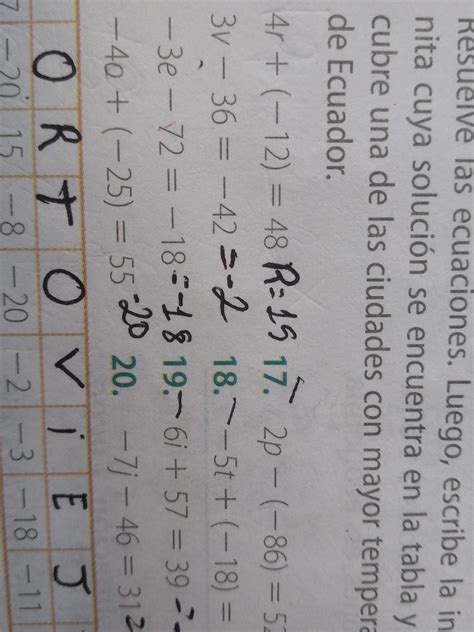 Resuelve las ecuaciones. Luego, escribe la in
nita cuya solución se encuentra en la tabla y
cubre una de las ciudades con mayor tempera
de Ecuador.
4r + (−12) = 48 R=15 17. 2p − (−86) = 52
3v − 36 = −42 =-2 18. −5t + (−18) =
−3e − 72 = −18 =-18 19. −6i + 57 = 39 =-
−4o + (−25) = 55 -20 20. −7j − 46 = 31
O R T O V i E J
−20 15 −8 −20 −2 −3 −18 −11